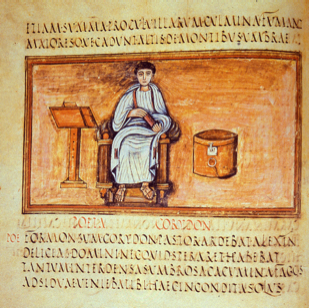 ETIAM·SUMMA·PROCUL·VILLARUM·CULMINA·FUMANT
MAIORESQUE·CADUNT·ALTIS·DE·MONTIBUS·UMBRAE
POETA CORYDON
POE FORMONSUM·CORYDON·PASTOR·ARDEBAT·ALEXIN
DELICIAS·DOMINI·NEC·QUID·SPERARET·HABEBAT
TANTUM·INTER·DENSAS·UMBROSA·CACUMINA·FAGOS
ADSIDUE·VENIEBAT·IBI·HAEC·INCONDITA·SOLUS